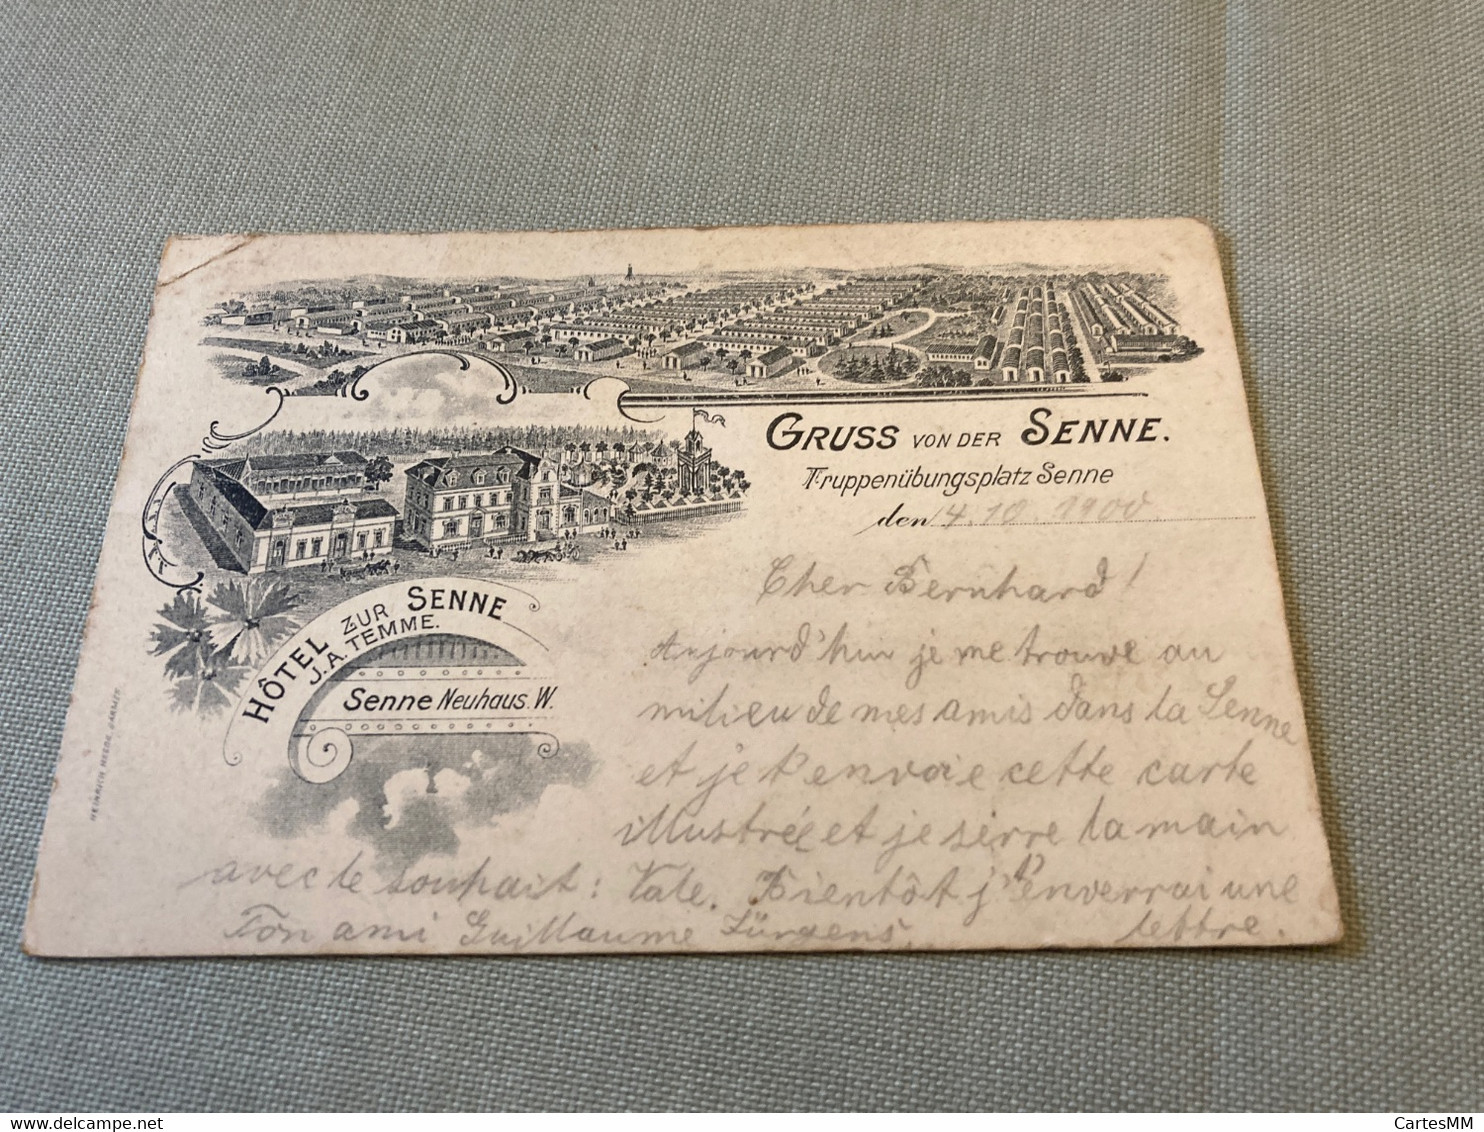 GRUSS VON DER SENNE.
Truppenübungsplatz Senne
den 14.10 1900
HÔTEL ZUR SENNE
J.A. TEMME.
Senne Neuhaus. W.
Cher Bernhard!
Aujourd'hui je me trouve au
milieu de mes amis dans la Senne
et je t'envoie cette carte
illustrée et je serre la main
avec le souhait: Vale. Bientôt j't'enverrai une
lettre.
Ton ami Guillaume Jürgens.
CartesMM